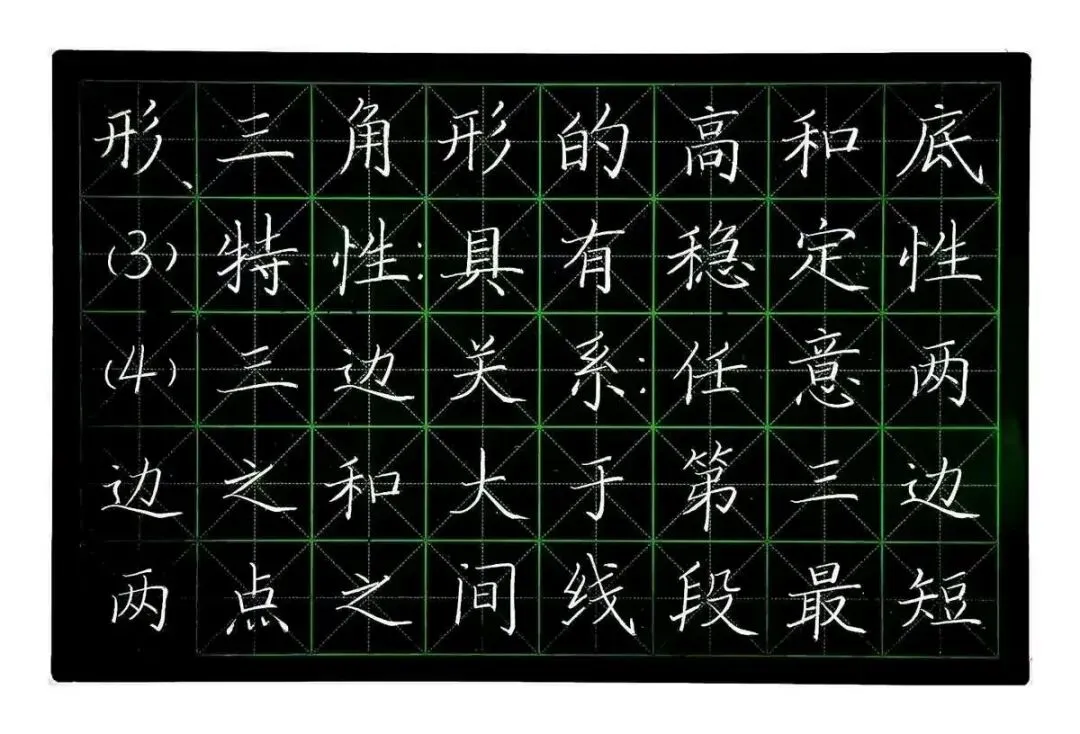 形、三角形的高和底
(3)特性:具有稳定性
(4)三边关系:任意两
边之和大于第三边
两点之间线段最短